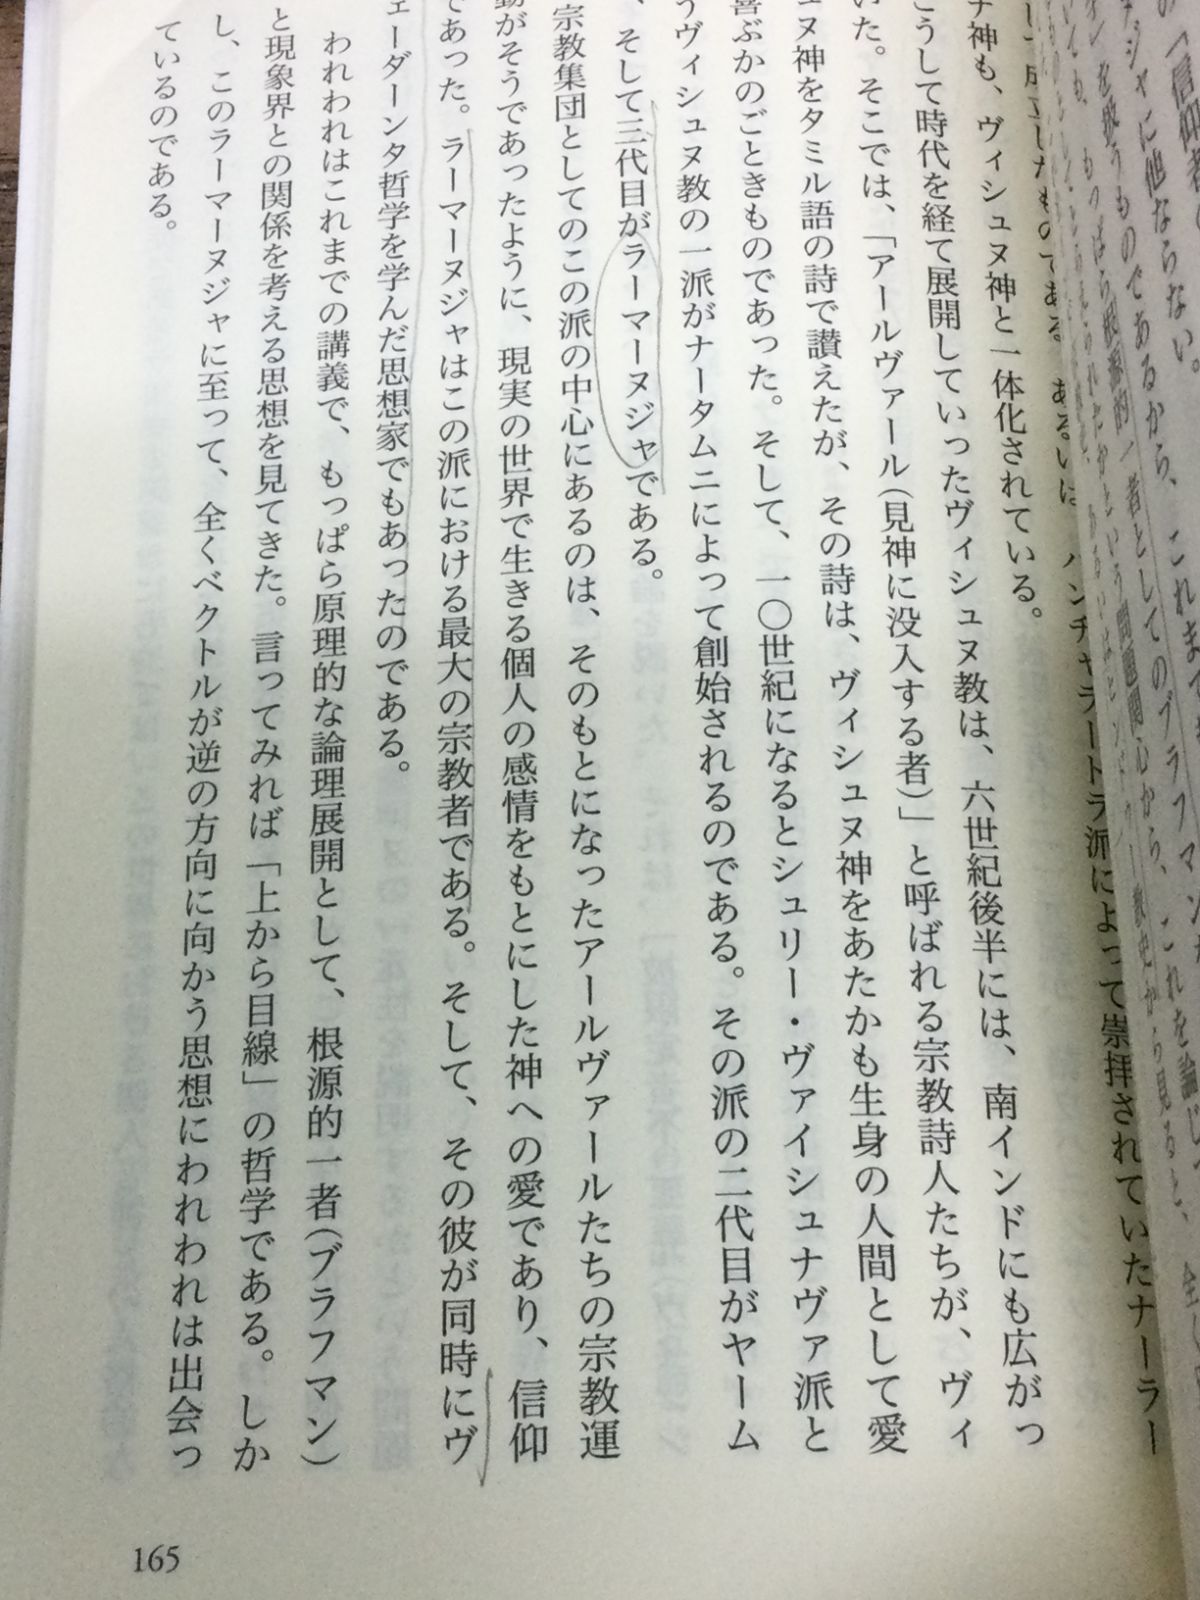 して成立したものである。あるいは、パンチャラートラ派によって崇拝されていたナーラー
ナ神も、ヴィシュヌ神と一体化されている。
こうして時代を経て展開していったヴィシュヌ教は、六世紀後半には、南インドにも広がっ
いた。そこでは、「アールヴァール(見神に没入する者)」と呼ばれる宗教詩人たちが、ヴィ
ュヌ神をタミル語の詩で讃えたが、その詩は、ヴィシュヌ神をあたかも生身の人間として愛
喜ぶかのごときものであった。そして、一〇世紀になるとシュリー・ヴァイシュナヴァ派と
うヴィシュヌ教の一派がナータムニによって創始されるのである。その派の二代目がヤーム
、そして三代目がラーマーヌジャである。
宗教集団としてのこの派の中心にあるのは、そのもとになったアールヴァールたちの宗教運
動がそうであったように、現実の世界で生きる個人の感情をもとにした神への愛であり、信仰
であった。ラーマーヌジャはこの派における最大の宗教者である。そして、その彼が同時にヴ
ェーダーンタ哲学を学んだ思想家でもあったのである。
われわれはこれまでの講義で、もっぱら原理的な論理展開として、根源的一者(ブラフマン)
と現象界との関係を考える思想を見てきた。言ってみれば「上から目線」の哲学である。しか
し、このラーマーヌジャに至って、全くベクトルが逆の方向に向かう思想にわれわれは出会っ
ているのである。
165